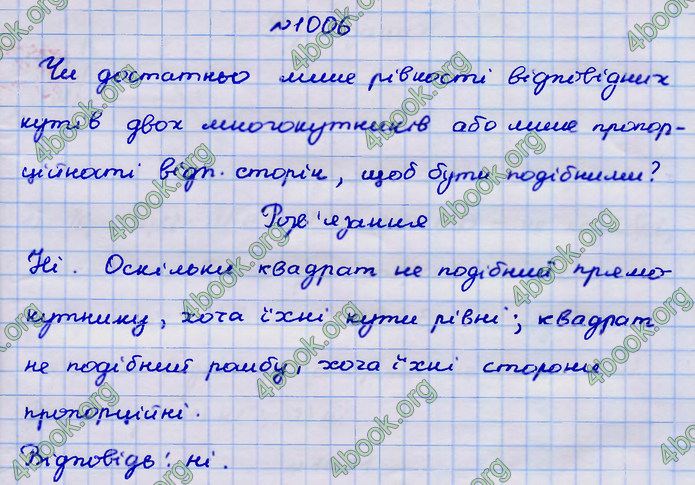 №1006
Чи достатньо лише рівності відповідних
кутів двох многокутників або лише пропор-
ційності відп. сторін, щоб бути подібними?
Розв'язання
Ні. Оскільки квадрат не подібний прямо-
кутнику, хоча їхні кути рівні; квадрат
не подібний ромбу, хоча їхні сторони
пропорційні.
Відповідь: ні.
4book.org